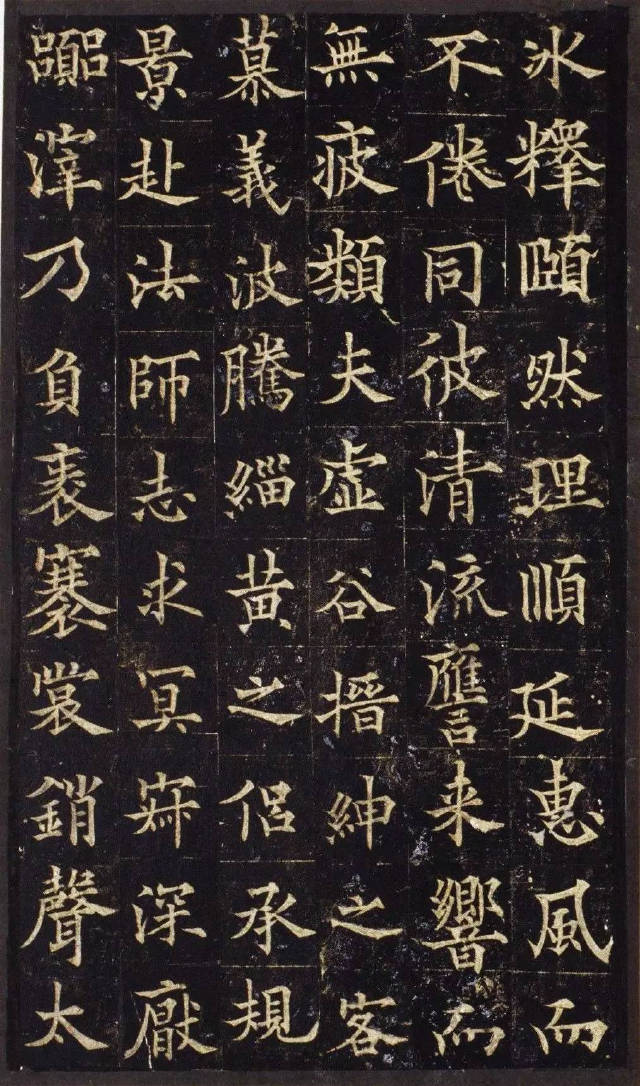 冰釋頤然理順延惠風而
不倦同彼清流譍来響而
無疲類夫虛谷搢紳之客
慕義波騰緇黃之侶承規
景赴法師志求冥寂深厭
嚻滓乃負袠褰裳銷聲太